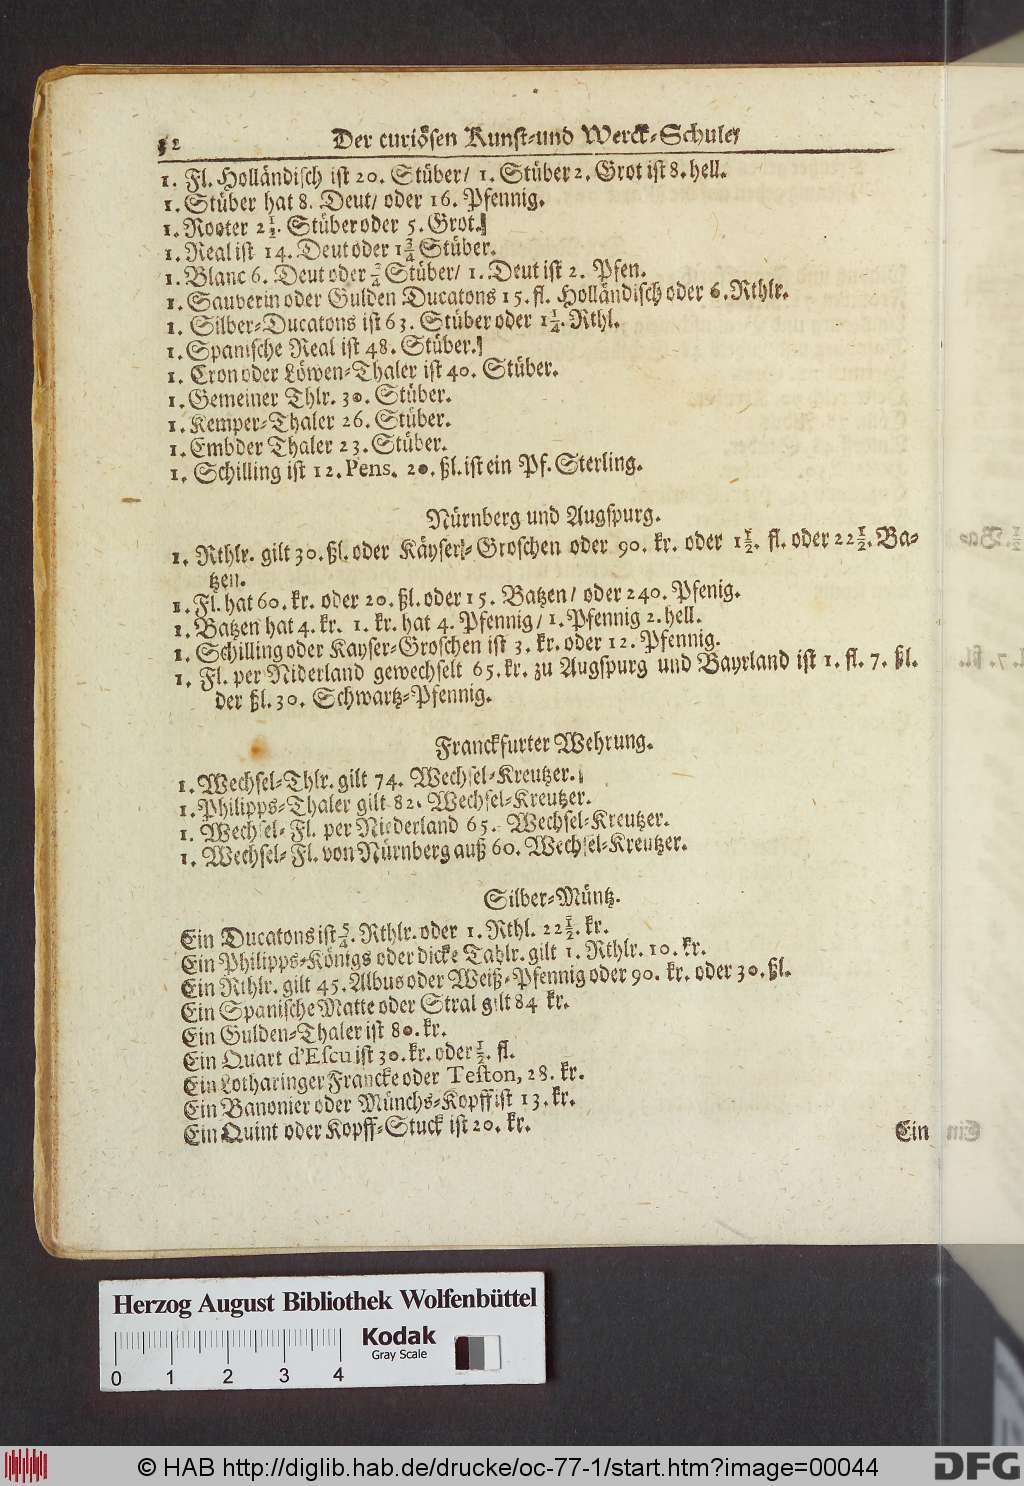 Der curiösen Kunst-und Werck-Schule/
1. Fl. Holländisch ist 20. Stüber/ 1. Stüber 2. Grot ist 8. hell.
1. Stüber hat 8. Deut/ oder 16. Pfennig.
1. Rooter 2½. Stüber oder 5. Grot.
1. Real ist 14. Deut oder 1¾ Stüber.
1. Blanc 6. Deut oder ¾ Stüber/ 1. Deut ist 2. Pfen.
1. Sauverin oder Gulden Ducatons 15. fl. Holländisch oder 6. Rthlr.
1. Silber-Ducatons ist 63. Stüber oder 1¼. Rthl.
1. Spanische Real ist 48. Stüber.
1. Cron oder Löwen-Thaler ist 40. Stüber.
1. Gemeiner Thlr. 30. Stüber.
1. Kemper-Thaler 26. Stüber.
1. Embder Thaler 23. Stüber.
1. Schilling ist 12. Pens. 20. ßl. ist ein Pf. Sterling.
Nürnberg und Augspurg.
1. Rthlr. gilt 30. ßl. oder Käyser-Groschen oder 90. kr. oder 1½. fl. oder 22½. Ba-
tzen.
1. Fl. hat 60. kr. oder 20. ßl. oder 15. Batzen/ oder 240. Pfenig.
1. Batzen hat 4. kr. 1. kr. hat 4. Pfennig/ 1. Pfennig 2. hell.
1. Schilling oder Kayser-Groschen ist 3. kr. oder 12. Pfennig.
1. Fl. per Niderland gewechselt 65. kr. zu Augspurg und Bayrland ist 1. fl. 7. ßl.
der ßl. 30. Schwartz-Pfennig.
Franckfurter Wehrung.
1. Wechsel-Thlr. gilt 74. Wechsel-Kreutzer.
1. Philipps-Thaler gilt 82. Wechsel-Kreutzer.
1. Wechsel-Fl. per Niederland 65. Wechsel-Kreutzer.
1. Wechsel-Fl. von Nürnberg auß 60. Wechsel-Kreutzer.
Silber-Müntz.
Ein Ducatons ist 5/4. Rthlr. oder 1. Rthl. 22½. kr.
Ein Philipps-Königs oder dicke Tahlr. gilt 1. Rthlr. 10. kr.
Ein Rthlr. gilt 45. Albus oder Weiß-Pfennig oder 90. kr. oder 30. ßl.
Ein Spanische Matte oder Stral gilt 84 kr.
Ein Gulden-Thaler ist 80. kr.
Ein Quart d'Escu ist 30. kr. oder ½. fl.
Ein Lotharinger Francke oder Teston, 28. kr.
Ein Banonier oder Münchs-Kopff ist 13. kr.
Ein Quint oder Kopff-Stuck ist 20. kr.
Ein
Herzog August Bibliothek Wolfenbüttel
Kodak
Gray Scale
0 1 2 3 4
© HAB http://diglib.hab.de/drucke/oc-77-1/start.htm?image=00044
DFG